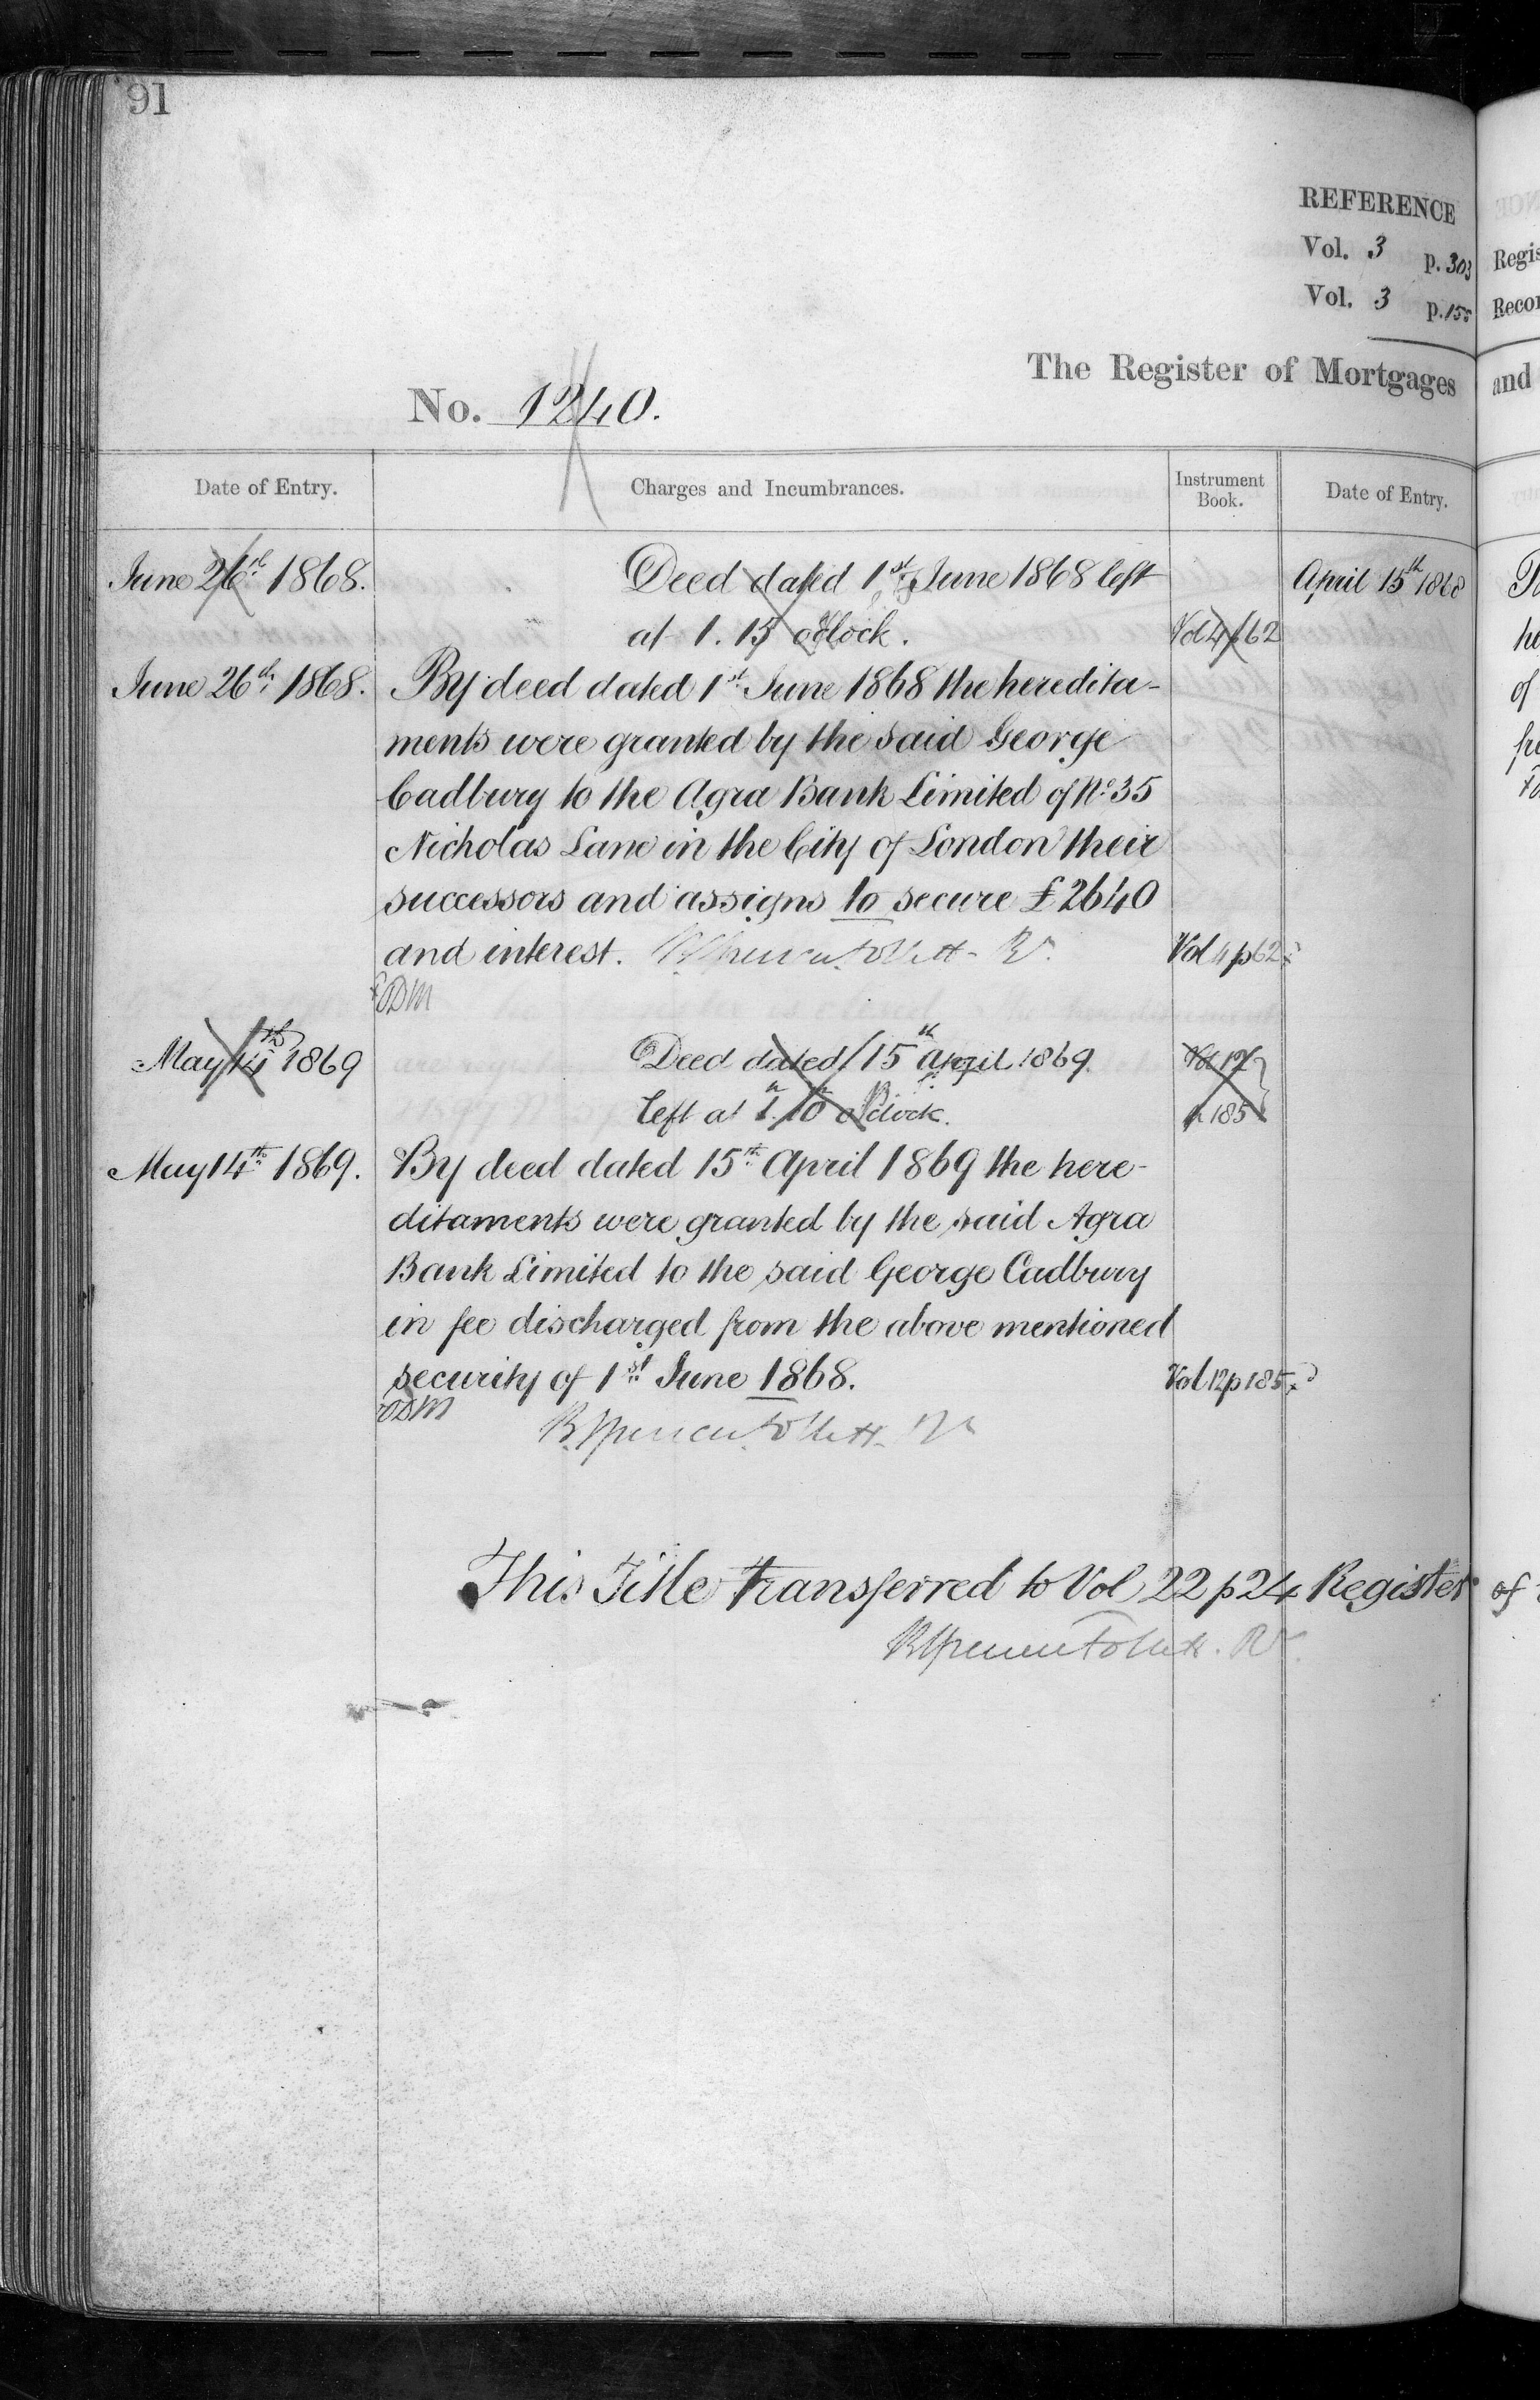 91
REFERENCE
Vol. 3 p. 303
Vol. 3 p. 155
The Register of Mortgages
No. 1240.
Date of Entry. Charges and Incumbrances. Instrument Book. Date of Entry.
June 26th 1868. Deed dated 1st June 1868 left April 15th 1868
at 1.15 o'Clock. Vol 4 p 62
June 26th 1868. By deed dated 1st June 1868 the heredita-
ments were granted by the said George
Cadbury to the Agra Bank Limited of No. 35
Nicholas Lane in the City of London their
successors and assigns to secure £2640
and interest. Vol 4 p 62
ODM
May 14th 1869 Deed dated 15th April 1869 Vol 12
left at 1.10 o'Clock. p 185
May 14th 1869. By deed dated 15th April 1869 the here-
ditaments were granted by the said Agra
Bank Limited to the said George Cadbury
in fee discharged from the above mentioned
security of 1st June 1868. Vol 12 p 185
ODM
This Title transferred to Vol 22 p 24 Register of
Regis
Recor
and
he
of